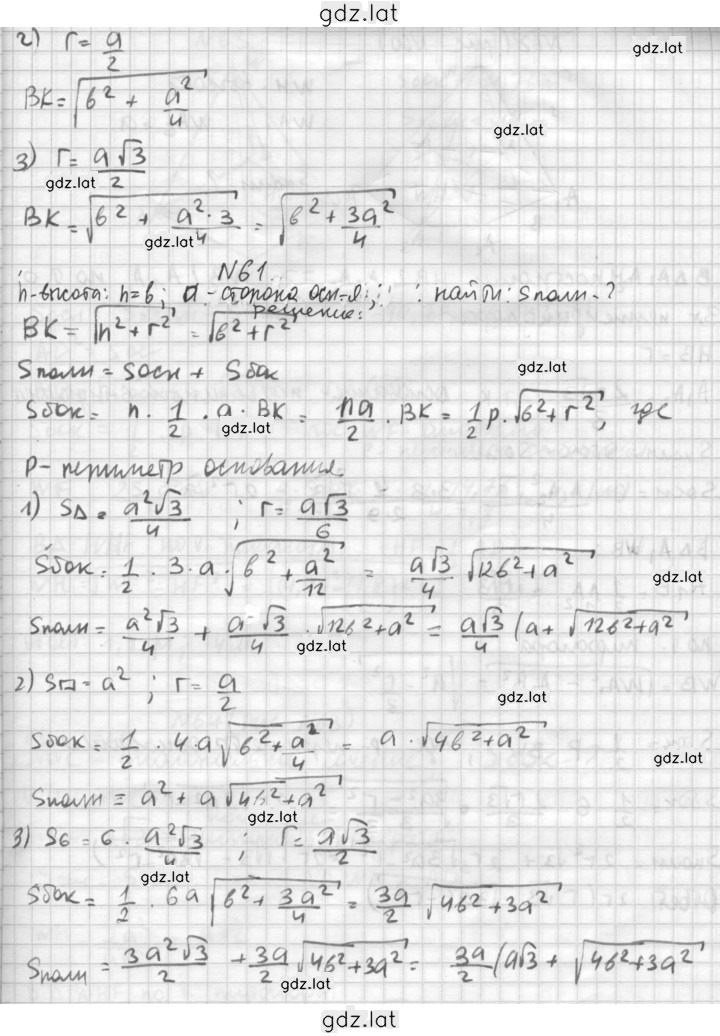 gdz.lat
2) r = a/2
gdz.lat
BK = √(b² + a²/4)
gdz.lat
3) r = a√3/2
gdz.lat
BK = √(b² + a²·3/4) = √(b² + 3a²/4)
gdz.lat
N61.
h-высота: h=b; a - сторона осн-я; найти: Sполн - ?
решение:
BK = √(h² + r²) = √(b² + r²)
gdz.lat
Sполн = Sосн + Sбок
Sбок = n · 1/2 · a · BK = na/2 · BK = 1/2 p · √(b² + r²), где
gdz.lat
P - периметр основания
1) S△ = a²√3/4 ; r = a√3/6
Sбок = 1/2 · 3 · a · √(b² + a²/12) = a√3/4 √(12b² + a²)
gdz.lat
Sполн = a²√3/4 + a√3/4 · √(12b² + a²) = a√3/4 (a + √(12b² + a²)
gdz.lat
2) S□ = a² ; r = a/2
gdz.lat
Sбок = 1/2 · 4 · a √(b² + a²/4) = a · √(4b² + a²)
gdz.lat
Sполн = a² + a √(4b² + a²)
gdz.lat
3) S6 = 6 · a²√3/4 ; r = a√3/2
gdz.lat
Sбок = 1/2 · 6a √(b² + 3a²/4) = 3a/2 √(4b² + 3a²)
Sполн = 3a²√3/2 + 3a/2 √(4b² + 3a²) = 3a/2 (a√3 + √(4b² + 3a²)
gdz.lat
gdz.lat